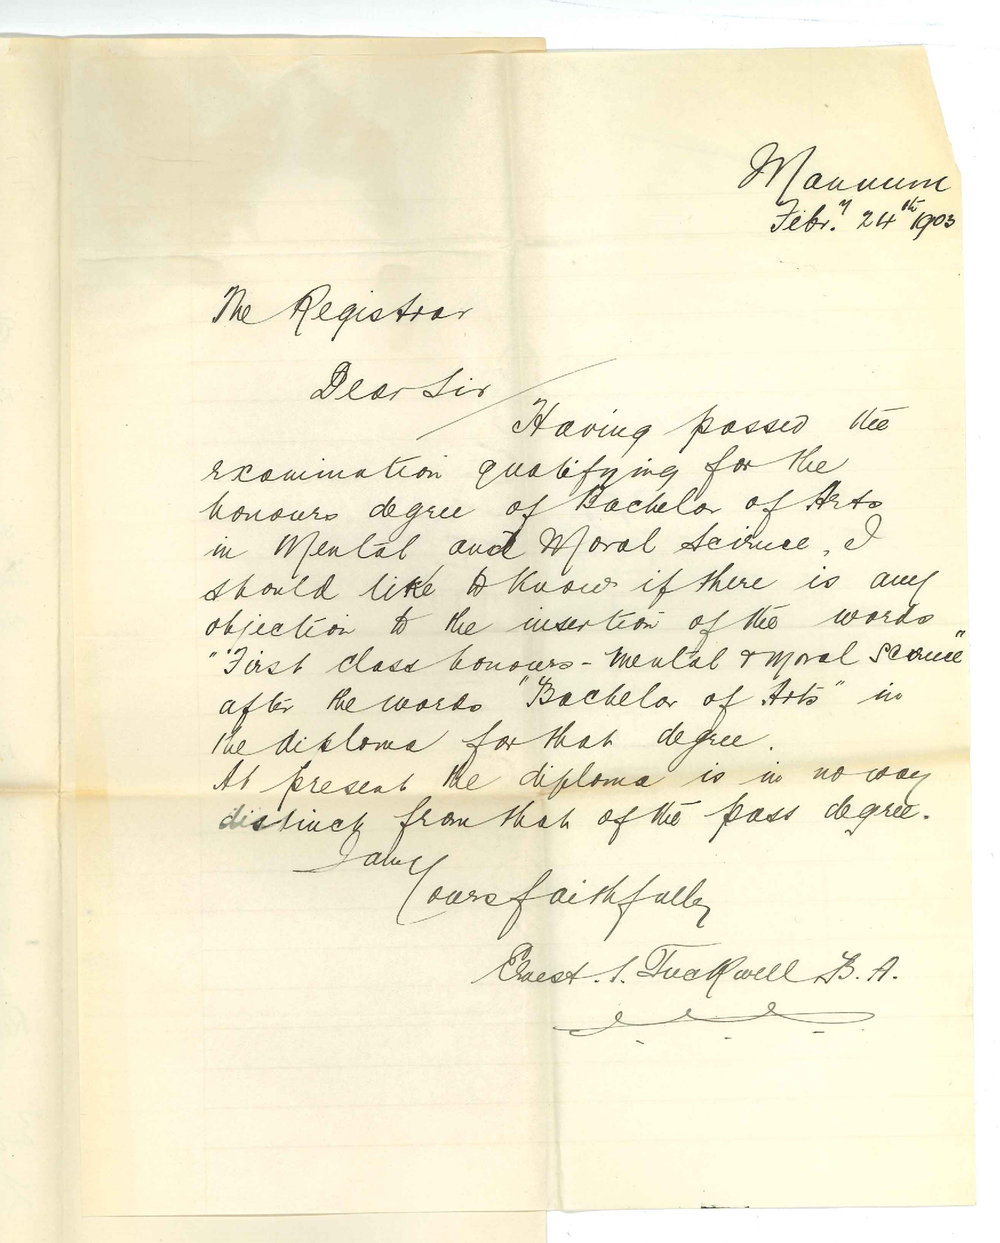 Mannum
Febr.y 24th 1903
The Registrar
Dear Sir
Having passed the
examination qualifying for the
honours degree of Bachelor of Arts
in Mental and Moral Science, I
should like to know if there is any
objection to the insertion of the words
"First class honours - Mental & Moral Science"
after the words "Bachelor of Arts" in
the diploma for that degree.
At present the diploma is in no way
distinct from that of the pass degree.
I am
Yours faithfully
Ernest. S. Tuckwell B. A.